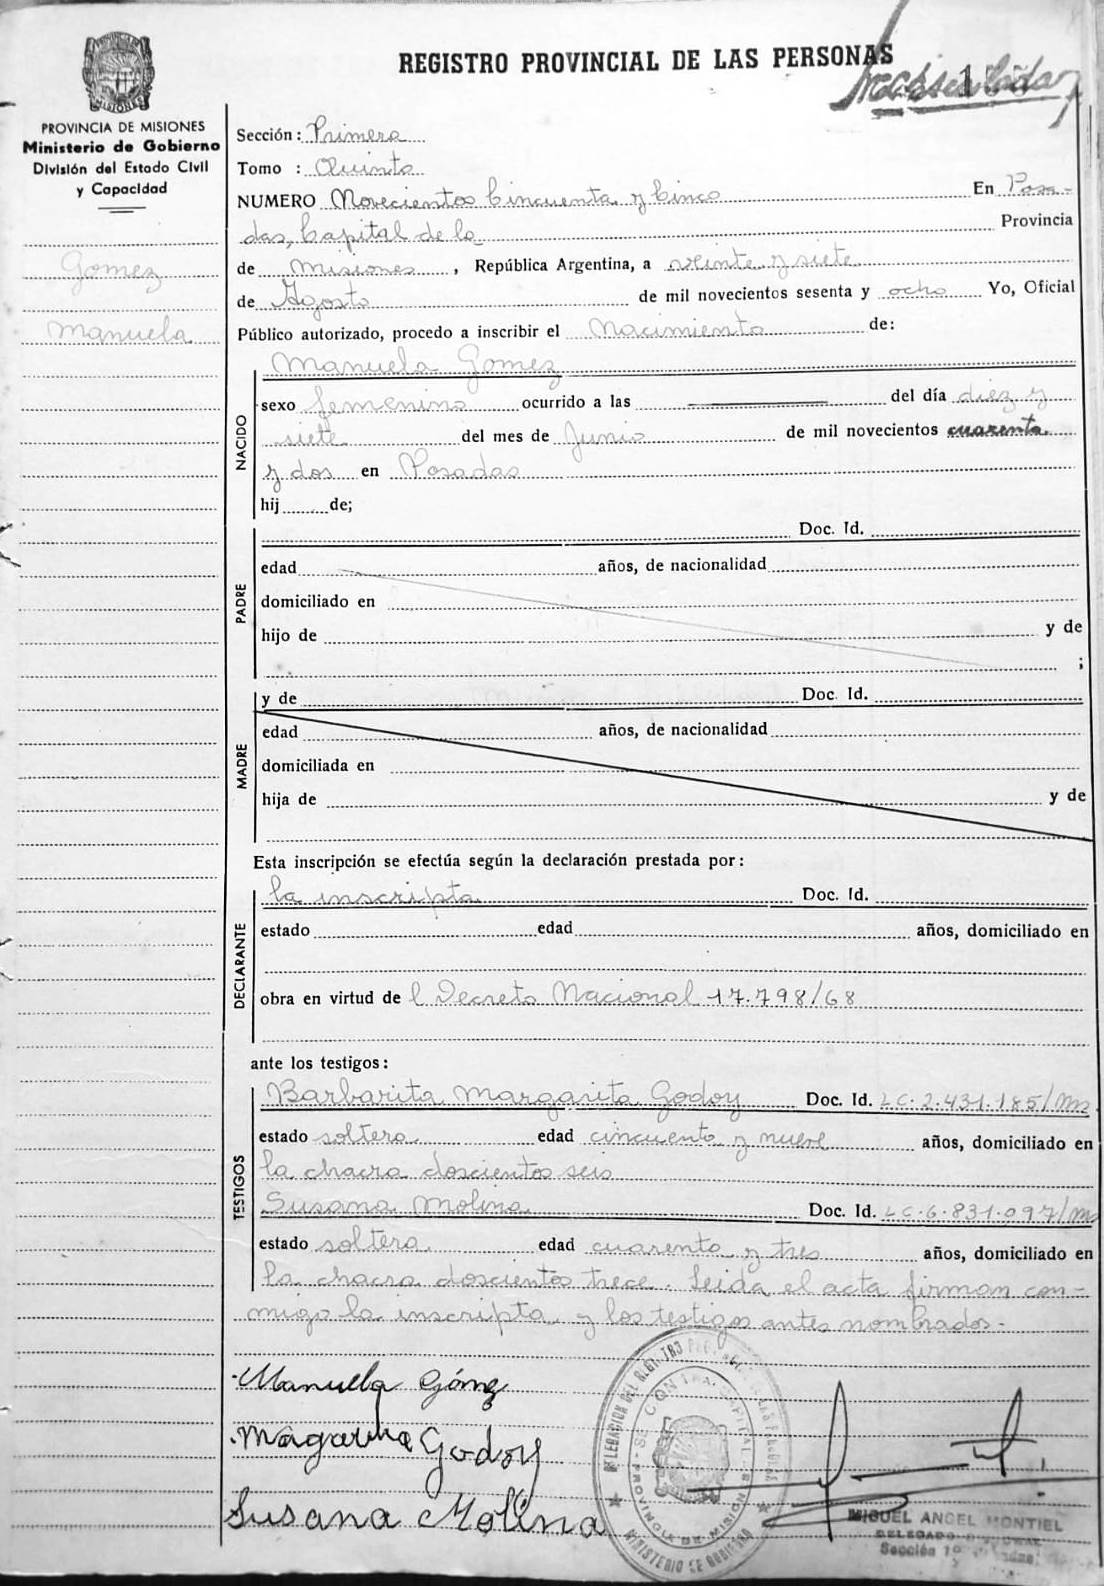 REGISTRO PROVINCIAL DE LAS PERSONAS
PROVINCIA DE MISIONES
Ministerio de Gobierno
División del Estado Civil
y Capacidad
Gomez
Manuela
Sección: Primera
Tomo : Quinto
NUMERO Novecientos Cincuenta y Cinco En Posa-
das, Capital de la Provincia
de Misiones, República Argentina, a veinte y siete
de Agosto de mil novecientos sesenta y ocho Yo, Oficial
Público autorizado, procedo a inscribir el Nacimiento de:
NACIDO
Manuela Gomez
sexo femenino ocurrido a las del día diez y
siete del mes de Junio de mil novecientos cuarenta
y dos en Posadas
hij de;
PADRE
Doc. Id.
edad años, de nacionalidad
domiciliado en
hijo de y de
;
MADRE
y de Doc. Id.
edad años, de nacionalidad
domiciliada en
hija de y de
Esta inscripción se efectúa según la declaración prestada por:
DECLARANTE
la inscripta Doc. Id.
estado edad años, domiciliado en
obra en virtud de l Decreto Nacional 17.798/68
ante los testigos:
TESTIGOS
Barbarita Margarita Godoy Doc. Id. LC.2.431.185/Ms
estado soltera edad cincuenta y nueve años, domiciliado en
la chacra doscientos seis
Susana Molina Doc. Id. LC.6.831.097/Ms
estado soltera edad cuarenta y tres años, domiciliado en
la chacra doscientos trece. Leida el acta firman con-
migo la inscripta y los testigos antes nombrados-
Manuela Gómez
Margarita Godoy
Susana Molina
DELEGACION DEL REGISTRO
PROVINCIA DE MISIONES
MINISTERIO DE GOBIERNO
MIGUEL ANGEL MONTIEL
DELEGADO
Sección 1º